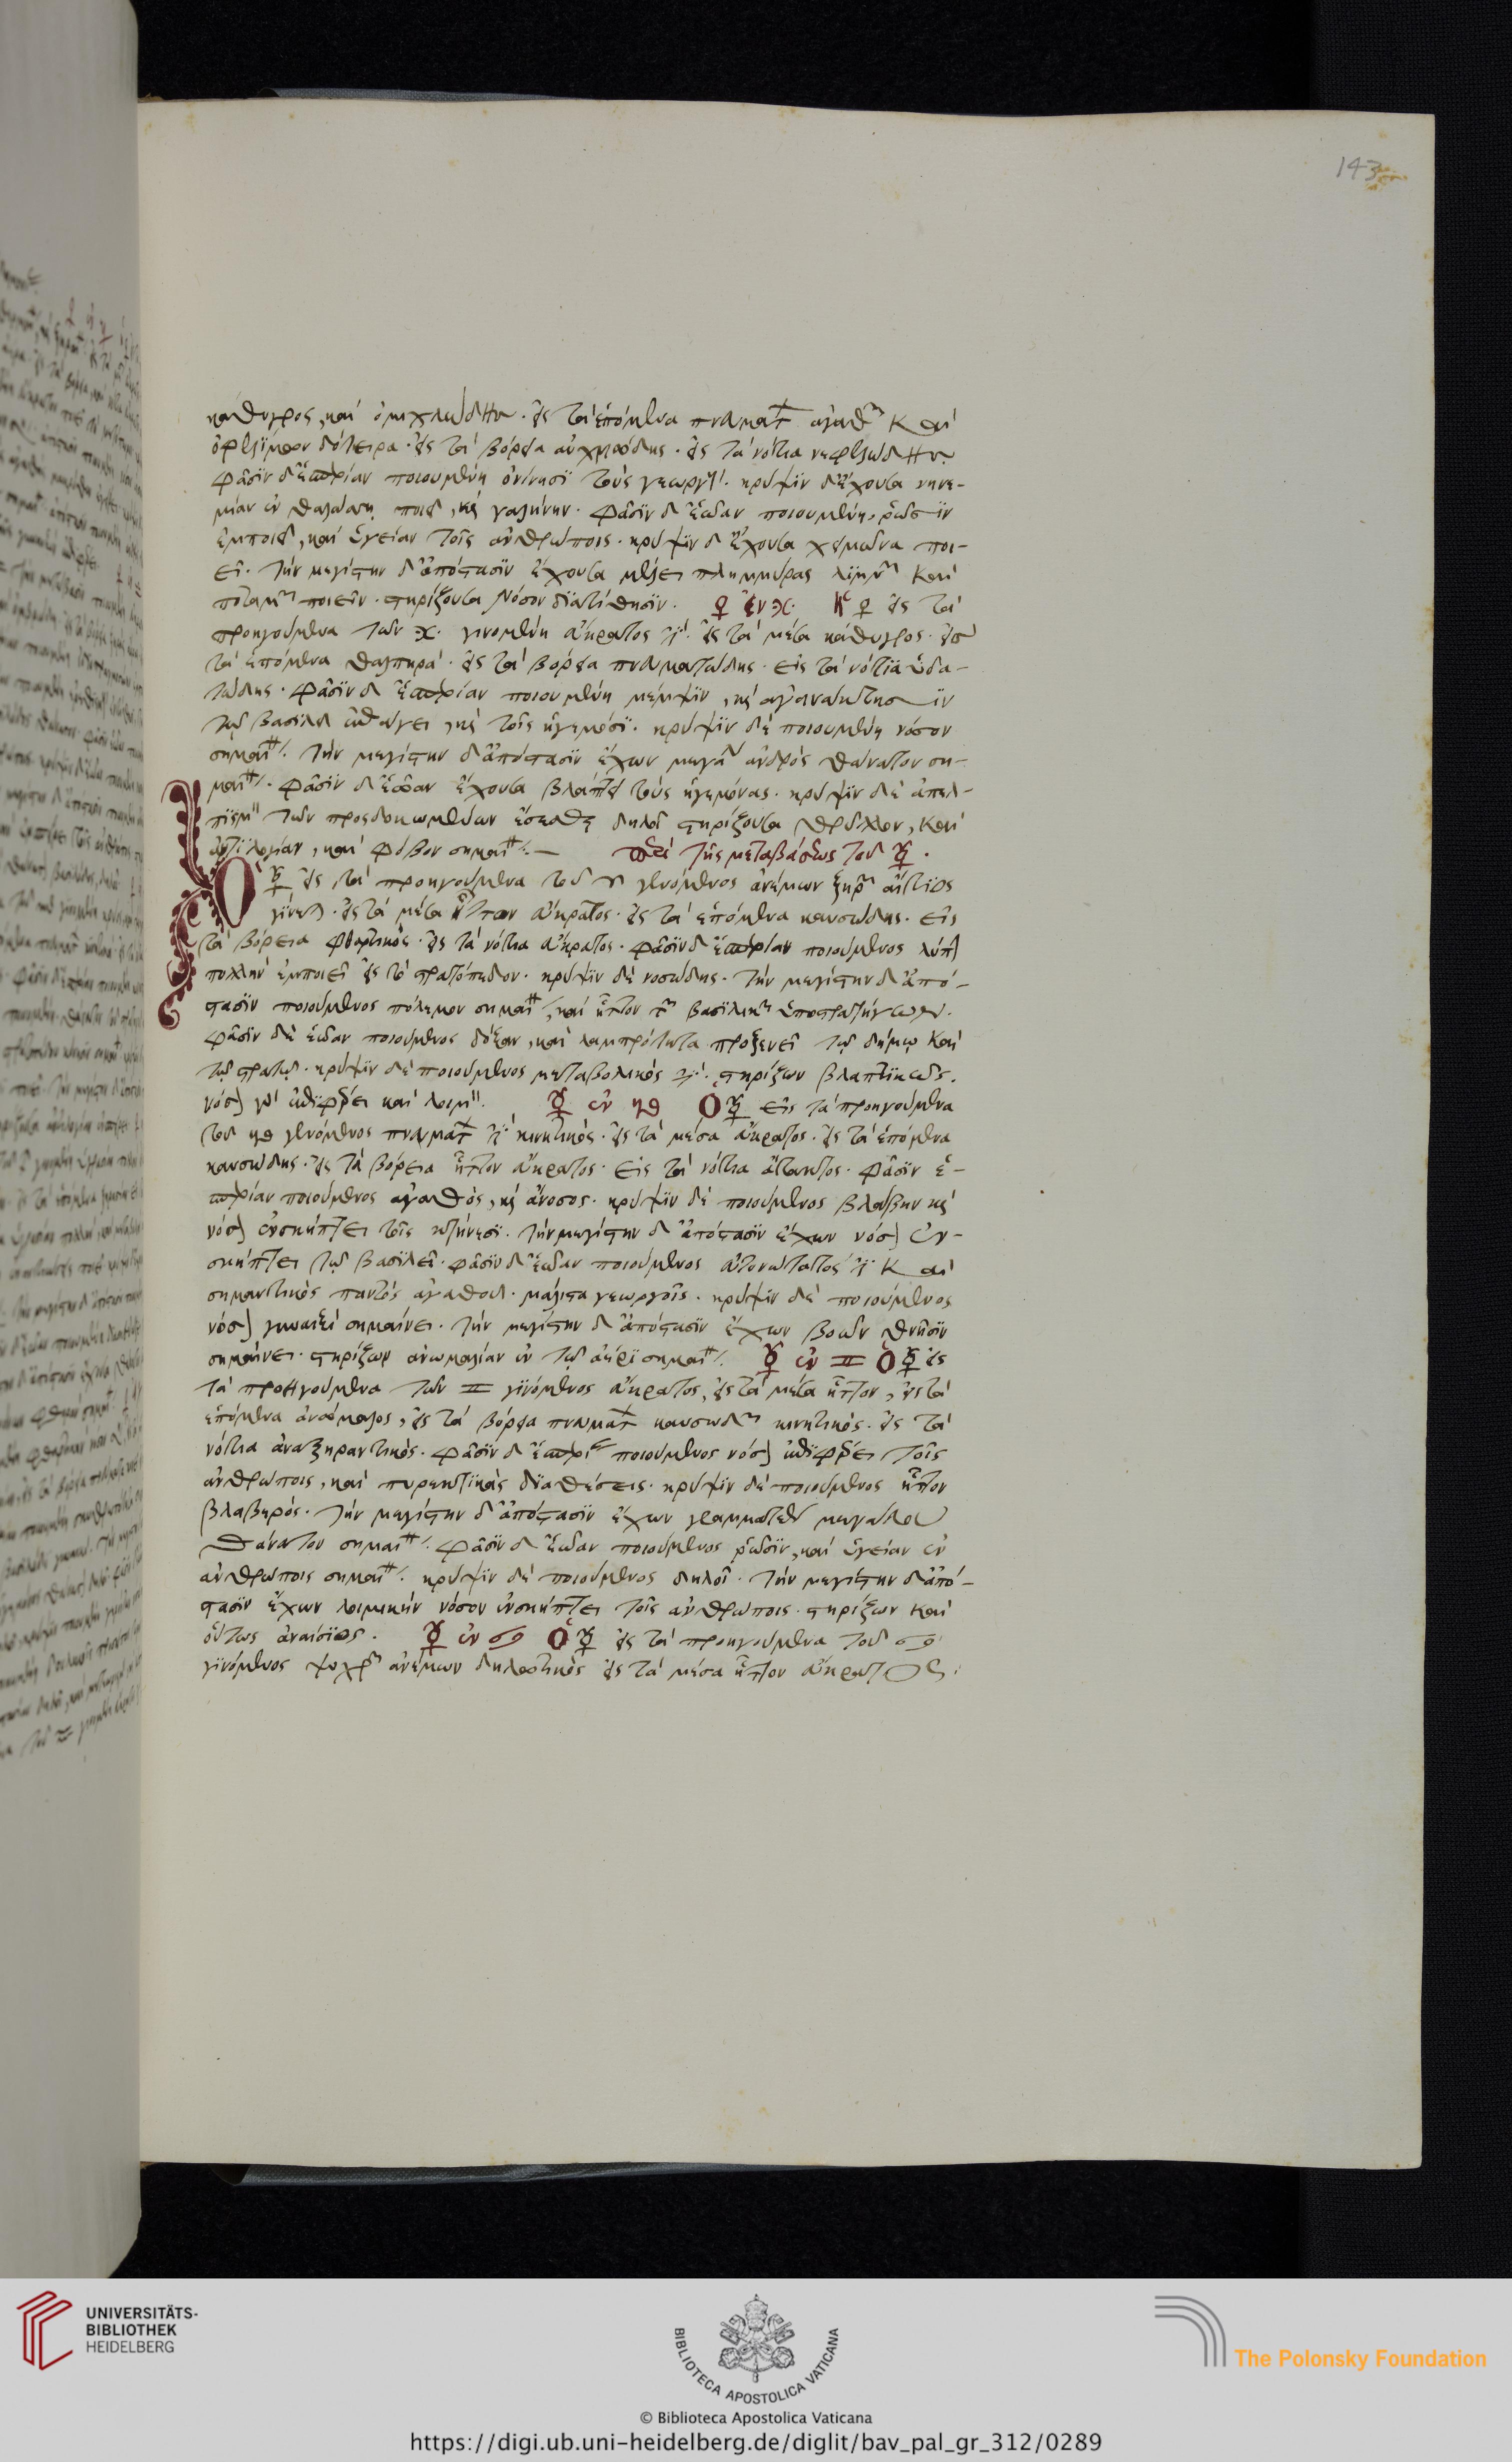 143
κάθυγρος, καὶ ὁμιχλώδης. εἰς τὰ ἑπόμενα πνευμάτ ἀγαθῶν καὶ
ὠφελίμων δότειρα. εἰς τὰ βόρεια αὐχμώδης. εἰς τὰ νότια νεφελώδης.
φάσϊν δ' ἑσπερίαν ποιουμένη ὀνίνησϊ τοὺς γεωργούς. κρύψϊν δ' ἔχουσα νηνε-
μίαν ἐν θαλάσσῃ ποιεῖ, καὶ γαλήνην. φάσϊν δ' ἑῴαν ποιουμένη, ῥῶσϊν
ἐμποιεῖ, καὶ ὑγείαν τοῖς ἀνθρώποις. κρύψϊν δ' ἔχουσα χειμῶνα ποι-
εῖ. τὴν μεγίστην δ' ἀπόστασϊν ἔχουσα μέλλει πλημμύρας λιμνῶν καὶ
ποταμῶν ποιεῖν. στηρίζουσα νόσον διατίθησϊν. ♀ ἐν ♓. ἡ ♀ εἰς τὰ
προηγούμενα τῶν ♓. γινομένη εὔκρατος ἐϊ. εἰς τὰ μέσα κάθυγρος. εἰς
τὰ ἑπόμενα θαλπηρά. εἰς τὰ βόρεια πνευματώδης. εἰς τὰ νότϊα ὑδα-
τώδης. φάσϊν δ' ἑσπερίαν ποιουμένη μέμψϊν, καὶ ἀγανάκτησϊν
τῷ βασιλεῖ ἐπάγει, καὶ τοῖς ἡγεμόσϊ. κρύψϊν δὲ ποιουμένη νόσον
σημαίνει. τὴν μεγίστην δ' ἀπόστασϊν ἔχων μεγάλου ἀνδρὸς θάνατον ση-
μαίνει. φάσϊν δ' ἑῴαν ἔχουσα βλάπτει τοὺς ἡγεμόνας. κρύψϊν δὲ ἀπελ-
πισμὸν τῶν προσδοκωμένων ἔσεσθαι δηλοῖ στηρίζουσα θρύλλον, καὶ
ἀντιλογίαν, καὶ φόβον σημαίνει.— περὶ τῆς μεταβάσεως τοῦ ☿.
Ὁ ☿ εἰς τὰ προηγούμενα τοῦ ♈ γενόμενος ἀνέμων ξηρῶν αἴτιος
γίνεται. εἰς τὰ μέσα ἧττον εὔκρατος. εἰς τὰ ἑπόμενα καυσώδης. εἰς
τὰ βόρεια φθαρτικός. εἰς τὰ νότια εὔκρατος. φάσϊν δ' ἑσπερίαν ποιούμενος λύπην
πολλὴν ἐμποιεῖ εἰς τὸ στρατόπεδον. κρύψϊν δὲ νοσώδης. τὴν μεγίστην δ' ἀπό-
στασϊν ποιούμενος πόλεμον σημαίνει, καὶ ἧττον τῶν βασιλικῶν ὑποστρατήγων.
φάσϊν δὲ ἑῴαν ποιούμενος δόξαν, καὶ λαμπρότητα προξενεῖ τῷ δήμῳ καὶ
τῷ στρατῷ. κρύψϊν δὲ ποιούμενος μεταβολικός ἐϊ. στηρίζων βλαπτικῶς.
νόσον γὰρ ἐπιφέρει καὶ λοιμόν. ☿ ἐν ♉ Ὁ ☿ εἰς τὰ προηγούμενα
τοῦ ♉ γενόμενος πνευμάτ ἐϊ κινητικός. εἰς τὰ μέσα εὔκρατος. εἰς τὰ ἑπόμενα
καυσώδης. εἰς τὰ βόρεια ἧττον εὔκρατος. εἰς τὰ νότια ἄτακτος. φάσϊν ἑ-
σπερίαν ποιούμενος ἀγαθός, καὶ ἄνοσος. κρύψϊν δὲ ποιούμενος βλάβην καὶ
νόσον ἐνσκήπτει τοῖς κτήνεσϊ. τὴν μεγίστην δ' ἀπόστασϊν ἔχων νόσον ἐν-
σκήπτει τῷ βασιλεῖ. φάσϊν δ' ἑῴαν ποιούμενος εὐτονώτατός ἐϊ καὶ
σημαντικὸς παντὸς ἀγαθοῦ. μάλιστα γεωργοῖς. κρύψϊν δὲ ποιούμενος
νόσον γυναιξὶ σημαίνει. τὴν μεγίστην δ' ἀπόστασϊν ἔχων βοῶν θνῆσϊν
σημαίνει. στηρίζων ἀνωμαλίαν ἐν τῷ ἀέρϊ σημαίνει. ☿ ἐν ♊ Ὁ ☿ εἰς
τὰ προηγούμενα τῶν ♊ γινόμενος εὔκρατος, εἰς τὰ μέσα ἧττον, εἰς τὰ
ἑπόμενα ἀνώμαλος, εἰς τὰ βόρεια πνευμάτ καυσωδῶν κινητικός. εἰς τὰ
νότια ἀναξηραντικός. φάσϊν δ' ἑσπερίαν ποιούμενος νόσον ἐπιφέρει τοῖς
ἀνθρώποις, καὶ πυρεκτικὰς διαθέσεις. κρύψϊν δὲ ποιούμενος ἧττον
βλαβερός. τὴν μεγίστην δ' ἀπόστασϊν ἔχων γραμματέως μεγάλου
θάνατον σημαίνει. φάσϊν δ' ἑῴαν ποιούμενος ῥῶσϊν, καὶ ὑγείαν ἐν
ἀνθρώποις σημαίνει. κρύψϊν δὲ ποιούμενος δηλοῖ. τὴν μεγίστην δ' ἀπό-
στασϊν ἔχων λοιμικὴν νόσον ἐνσκήπτει τοῖς ἀνθρώποις. στηρίζων καὶ
οὕτως ἀναίσιος. ☿ ἐν ♋ Ὁ ☿ εἰς τὰ προηγούμενα τοῦ ♋
γινόμενος ψυχρῶν ἀνέμων δηλωτικὸς εἰς τὰ μέσα ἧττον εὔκρατος.
UNIVERSITÄTS-
BIBLIOTHEK
HEIDELBERG
BIBLIOTECA APOSTOLICA VATICANA
The Polonsky Foundation
© Biblioteca Apostolica Vaticana
https://digi.ub.uni-heidelberg.de/diglit/bav_pal_gr_312/0289